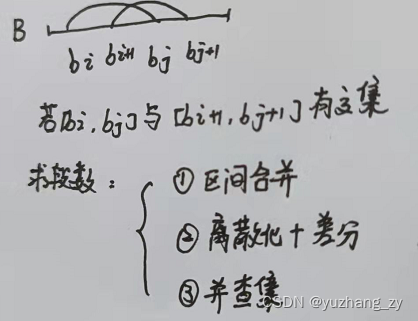 B
bi bi+1 bj bj+1
若[bi, bj]与[bi+1, bj+1]有交集
求段数：
① 区间合并
② 离散化+差分
③ 并查集
CSDN @yuzhang_zy